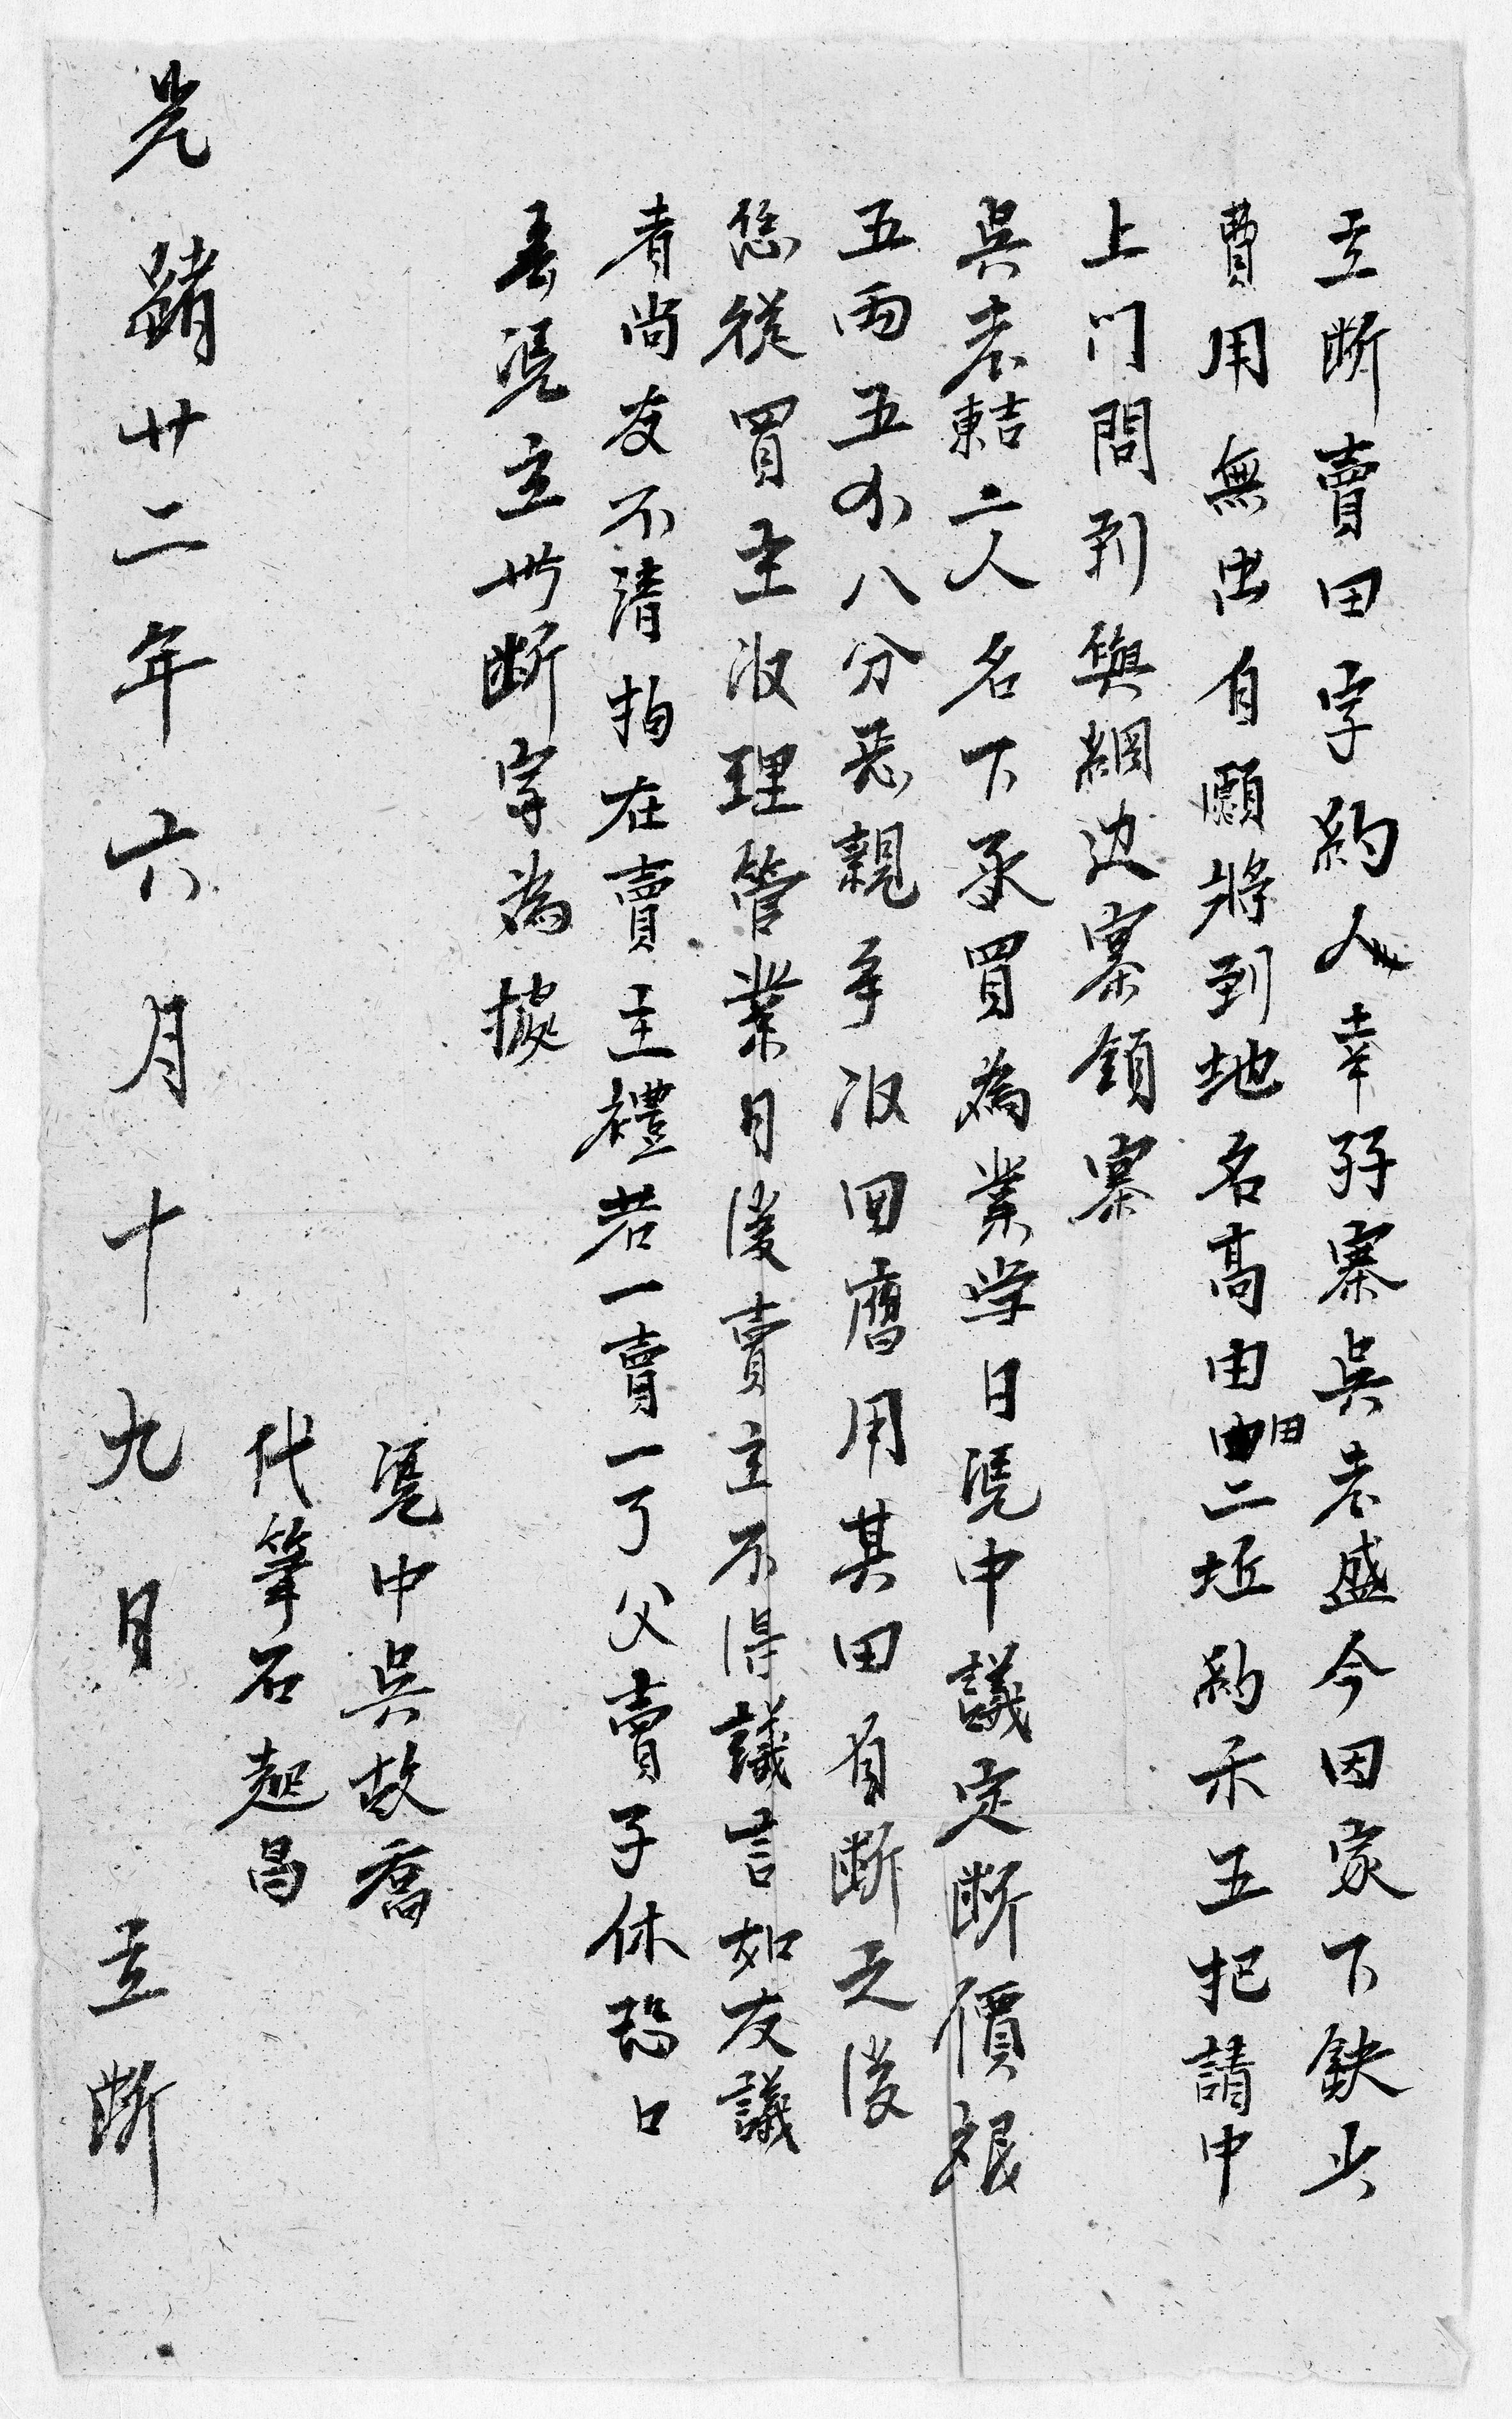 立断賣田字約人幸孖寨吳老盛今因家下缺少
費用無出自願將到地名高由田二坵約禾五把請中
上门問到與綱边寨領寨
吳老 二人名下承買為業学日凴中議定断價銀
五両五 八分 親手收回應用其田自断之後
恁從買主收理管業日後賣主不得議言如友議
者尚友不清拘在賣主禮若一賣一了父賣子休恐口
無凴立此断字為據
凴中吳故喬
代筆石起昌
光緒廿二年六月十九日 立断